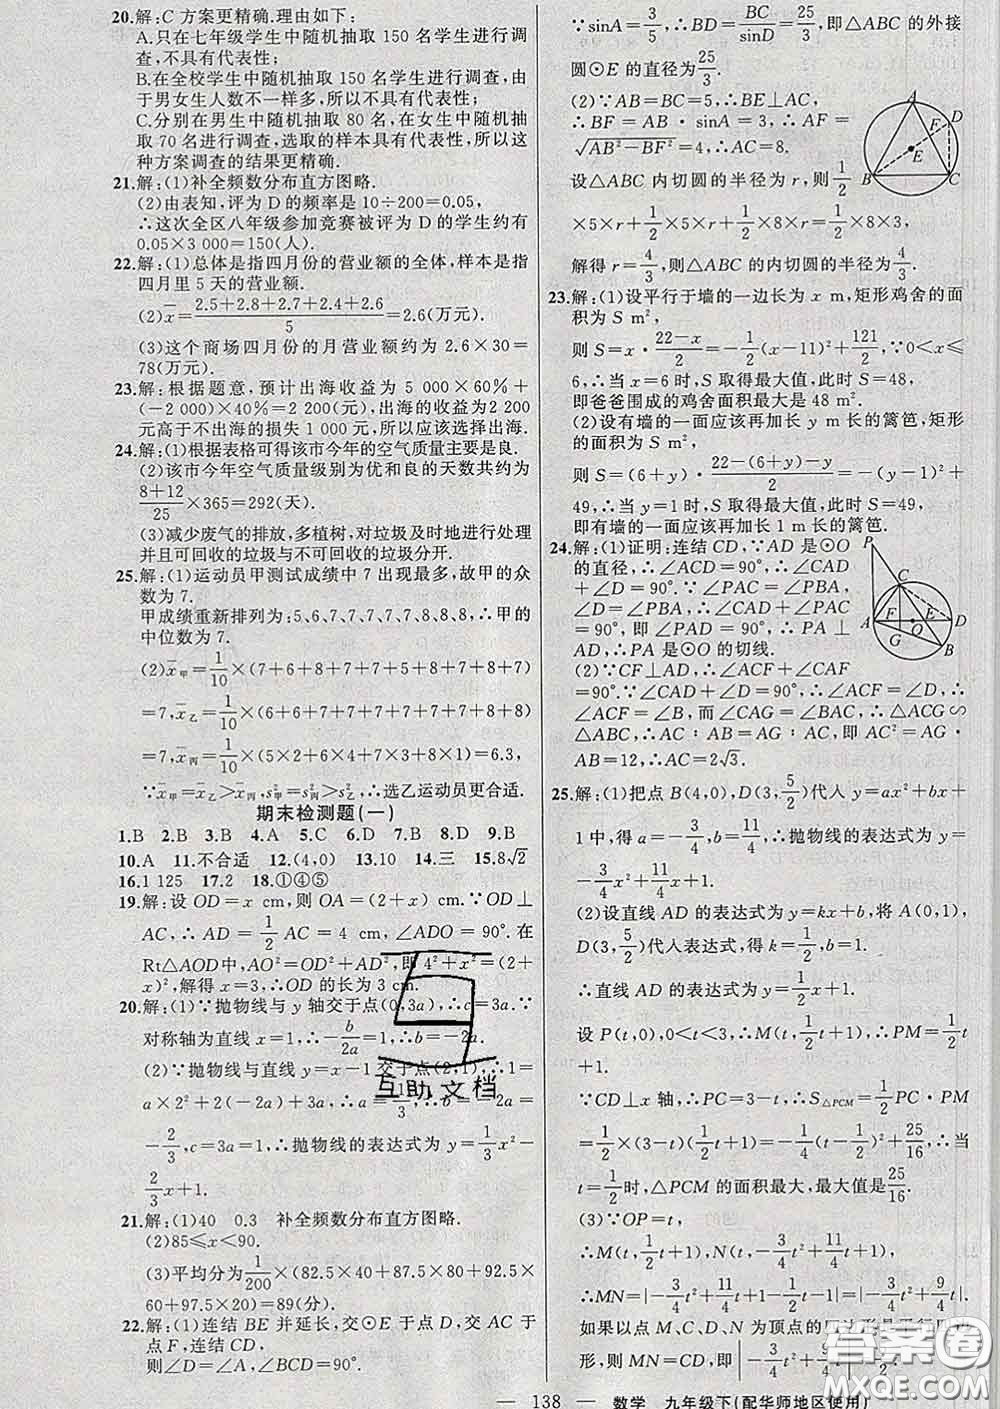 20.解:C 方案更精确.理由如下:
A.只在七年级学生中随机抽取 150 名学生进行调
查,不具有代表性;
B.在全校学生中随机抽取 150 名学生进行调查,由
于男女生人数不一样多,所以不具有代表性;
C.分别在男生中随机抽取 80 名,在女生中随机抽
取 70 名进行调查,选取的样本具有代表性,所以这
种方案调查的结果更精确.
21.解:(1)补全频数分布直方图略.
(2)由表知,评为 D 的频率是 10÷200=0.05,
∴这次全区八年级参加竞赛被评为 D 的学生约有
0.05×3 000=150(人).
22.解:(1)总体是指四月份的营业额的全体,样本是指
四月里 5 天的营业额.
(2)x̄=(2.5+2.8+2.7+2.4+2.6)/5=2.6(万元).
(3)这个商场四月份的月营业额约为 2.6×30=
78(万元).
23.解:根据题意,预计出海收益为 5 000×60%+
(-2 000)×40%=2 200(元),出海的收益为 2 200
元高于不出海的损失 1 000 元,所以应该选择出海.
24.解:(1)根据表格可得该市今年的空气质量主要是良.
(2)该市今年空气质量级别为优和良的天数共约为
(8+12)/25×365=292(天).
(3)减少废气的排放,多植树,对垃圾及时地进行处理
并且可回收的垃圾与不可回收的垃圾分开.
25.解:(1)运动员甲测试成绩中 7 出现最多,故甲的众
数为 7.
甲成绩重新排列为:5,6,7,7,7,7,7,8,8,8,∴甲的
中位数为 7.
(2)x̄甲=1/10×(7+6+8+7+7+5+8+7+8+7)
=7,x̄乙=1/10×(6+6+7+7+7+7+7+7+8+8)
=7,x̄丙=1/10×(5×2+6×4+7×3+8×1)=6.3,
∵x̄甲=x̄乙>x̄丙,s²甲>s²丙>s²乙,∴选乙运动员更合适.
期末检测题(一)
1.B 2.B 3.B 4.A 5.C 6.D 7.B 8.D 9.B
10.A 11.不合适 12.(4,0) 13.10 14.三 15.8√2
16.1 125 17.2 18.①④⑤
19.解:设 OD=x cm,则 OA=(2+x) cm.∵OD⊥
AC,∴AD=1/2 AC=4 cm,∠ADO=90°.在
Rt△AOD中,AO²=OD²+AD²,即 4²+x²=(2+
x)²,解得 x=3,∴OD 的长为 3 cm.
20.解:(1)∵抛物线与 y 轴交于点(0,3a),∴c=3a.∵
对称轴为直线 x=1,∴-b/2a=1,∴b=-2a.
(2)∵抛物线与直线 y=x-1 交于点(2,1),∴1=
a×2²+2(-2a)+3a,∴a=1/3,∴b=-2a=
-2/3,c=3a=1,∴抛物线的表达式为 y=1/3x²-
2/3x+1.
21.解:(1)40 0.3 补全频数分布直方图略.
(2)85≤x<90.
(3)平均分为1/200×(82.5×40+87.5×80+92.5×
60+97.5×20)=89(分).
22.解:(1)连结 BE 并延长,交⊙E 于点 D,交 AC 于
点 F,连结 CD,
则∠D=∠A,∠BCD=90°.
∵sinA=3/5,∴BD=BC/sinD=25/3,即△ABC 的外接
圆⊙E 的直径为25/3.
(2)∵AB=BC=5,∴BE⊥AC,
∴BF=AB·sinA=3,∴AF=
√(AB²-BF²)=4,∴AC=8.
设△ABC 内切圆的半径为 r,则1/2
×5×r+1/2×5×r+1/2×8×r=1/2×8×3,
解得 r=4/3,则△ABC 的内切圆的半径为4/3.
A
F D
E
B C
23.解:(1)设平行于墙的一边长为 x m,矩形鸡舍的面
积为 S m²,
则 S=x·(22-x)/2=-1/2(x-11)²+121/2,∵0<x≤
6,∴当 x=6 时,S 取得最大值,此时 S=48,
即爸爸围成的鸡舍面积最大是 48 m².
(2)设有墙的一面应该再加长 y m 长的篱笆,矩形
的面积为 S m²,
则 S=(6+y)·(22-(6+y)-y)/2=-(y-1)²+
49,∴当 y=1 时,S 取得最大值,此时 S=49,
即有墙的一面应该再加长 1 m 长的篱笆.
24.解:(1)证明:连结 CD,∵AD 是⊙O
的直径,∴∠ACD=90°,∴∠CAD
+∠D=90°.∵∠PAC=∠PBA,
∠D=∠PBA,∴∠CAD+∠PAC
=90°,即∠PAD=90°,∴PA⊥
AD,∴PA 是⊙O 的切线.
(2)∵CF⊥AD,∴∠ACF+∠CAF
=90°.∵∠CAD+∠D=90°,∴∠ACF=∠D,∴
∠ACF=∠B,而∠CAG=∠BAC,∴△ACG∽
△ABC,∴AC∶AB=AG∶AC,即 AC²=AG·
AB=12,∴AC=2√3.
P
C
A F O E D
G B
25.解:(1)把点 B(4,0),D(3,5/2)代入 y=ax²+bx+
1 中,得 a=-3/4,b=11/4,∴抛物线的表达式为 y=
-3/4x²+11/4x+1.
(2)设直线 AD 的表达式为 y=kx+b,将 A(0,1),
D(3,5/2)代入表达式,得 k=1/2,b=1.
∴直线 AD 的表达式为 y=1/2x+1.
设 P(t,0),0<t<3,∴M(t,1/2t+1),∴PM=1/2t
+1.
∵CD⊥x 轴,∴PC=3-t,∴S△PCM=1/2PC·PM=
1/2×(3-t)(1/2t+1)=-1/4(t-1/2)²+25/16,∴当
t=1/2时,△PCM 的面积最大,最大值是25/16.
(3)∵OP=t,
∴M(t,1/2t+1),N(t,-3/4t²+11/4t+1),
∴MN=|-3/4t²+11/4t+1-1/2t-1|=|-3/4t²+9/4t|.
如果以点 M、C、D、N 为顶点的四边形是平行四边
形,则 MN=CD,即|-3/4t²+
— 138 — 数学 九年级下(配华师地区使用)
互助文档
答案圈
MXQE.COM